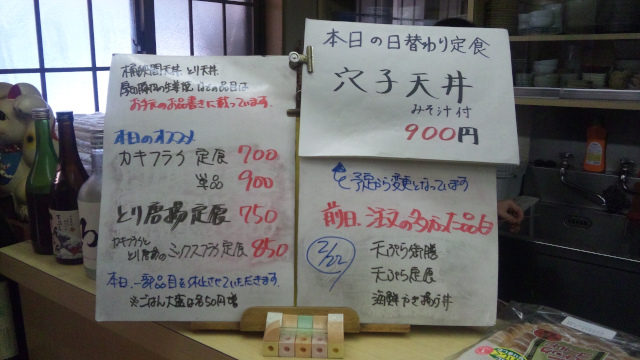 とり天丼
お手元のお品書きに載っています。
本日のオススメ
カキフライ定食 700
単品 900
とり唐揚定食 750
カキフライと
とり唐揚のミックスフライ定食 850
本日、一部品目を休止させていただきます。
※ごはん大盛は各50円増
本日の日替わり定食
穴子天丼
みそ汁付
900円
予定から変更となっています
前日、注文の多かった品目
2/22
天ぷら御膳
天ぷら定食
海鮮かき揚げ丼